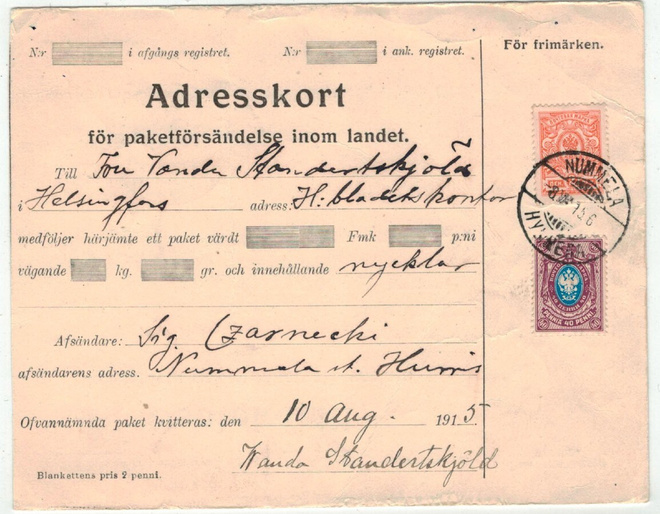 N:r i afgångs registret. N:r i ank. registret.
För frimärken.
Adresskort
för paketförsändelse inom landet.
Till Fru Vanda Standertskjöld
i Helsingfors adress: H:bladets kontor
medföljer härjämte ett paket värdt Fmk p:ni
vägande kg. gr. och innehållande nycklar
Afsändare: Sig. Czarnecki
afsändarens adress. Nummela st. Hurris
Ofvannämnda paket kvitteras: den 10 Aug. 1915
Wanda Standertskjöld
Blankettens pris 2 penni.
NUMMELA
PENNIÄ 40 PENNI